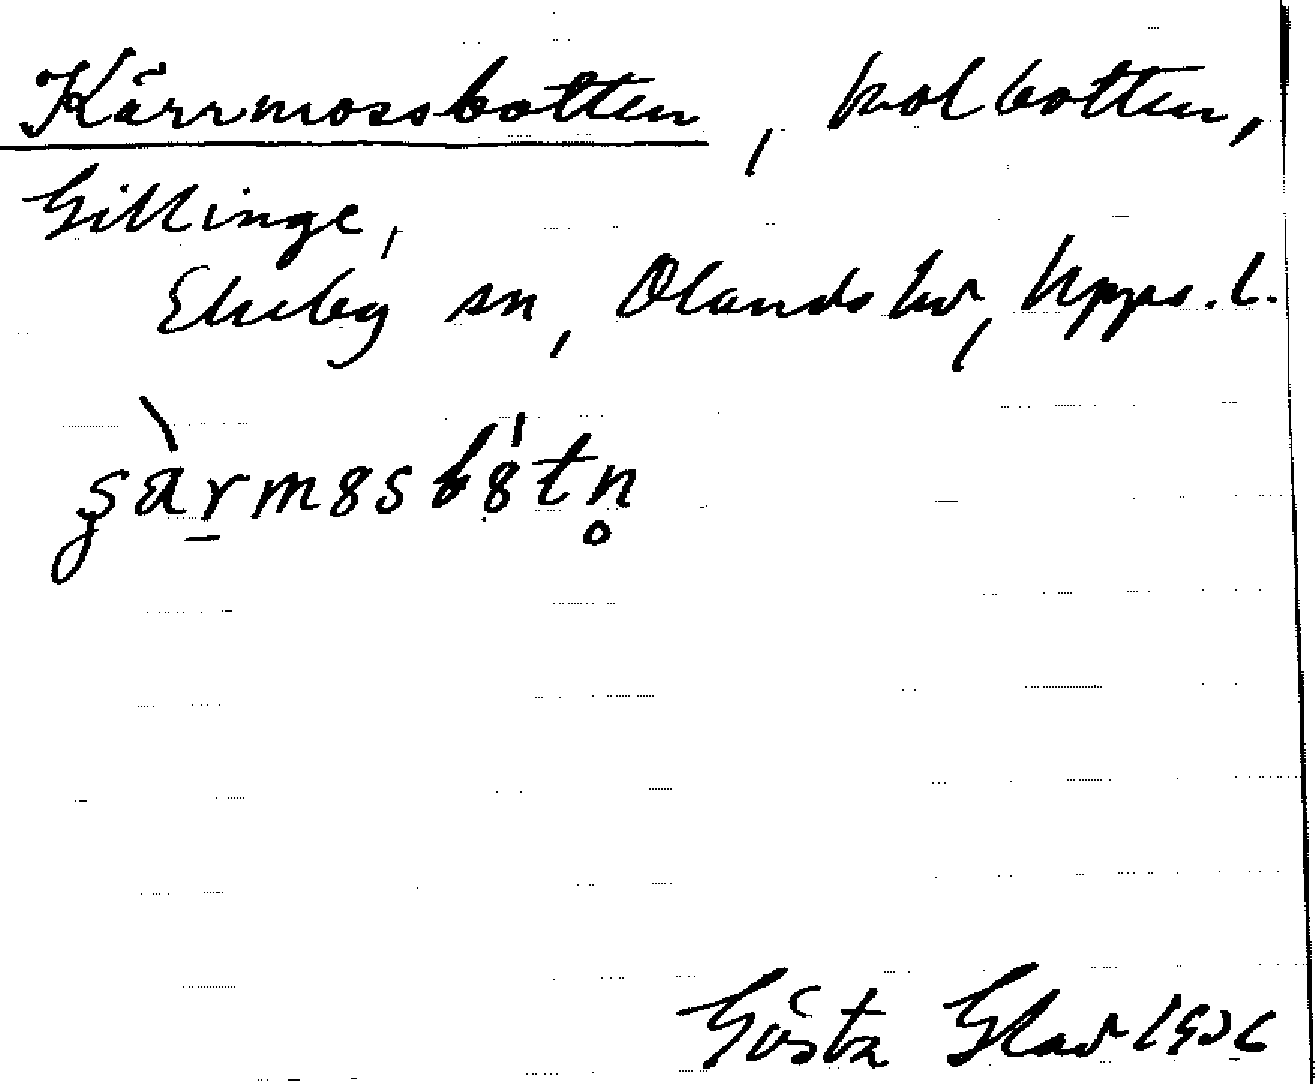 Kärrmossbotten, kolbotten,
Gillinge,
Ekeby sn, Olands hd, Upps. l.
Gösta Glad 1936